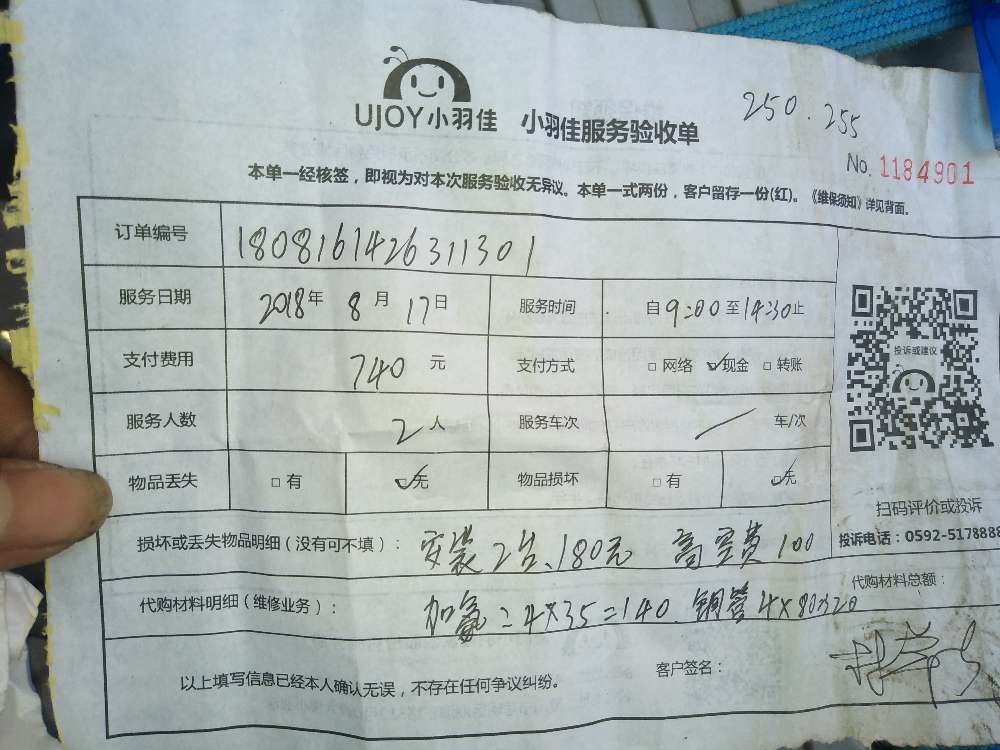 UJOY小羽佳 小羽佳服务验收单
250.255
No. 1184901
本单一经核签，即视为对本次服务验收无异议。本单一式两份，客户留存一份(红)。《维保须知》详见背面。
订单编号 1808161426311301
服务日期 2018年 8月 17日 服务时间 自9:00至14:30止
支付费用 740元 支付方式 □网络 ☑现金 □转账
服务人数 2人 服务车次 / 车/次
物品丢失 □有 ☑无 物品损坏 □有 ☑无
投诉或建议
扫码评价或投诉
投诉电话：0592-5178888
损坏或丢失物品明细（没有可不填）： 安装2台、180元 高空费100
代购材料明细（维修业务）： 加氟=4×35=140. 铜管4×80=320
代购材料总额：
以上填写信息已经本人确认无误，不存在任何争议纠纷。
客户签名：